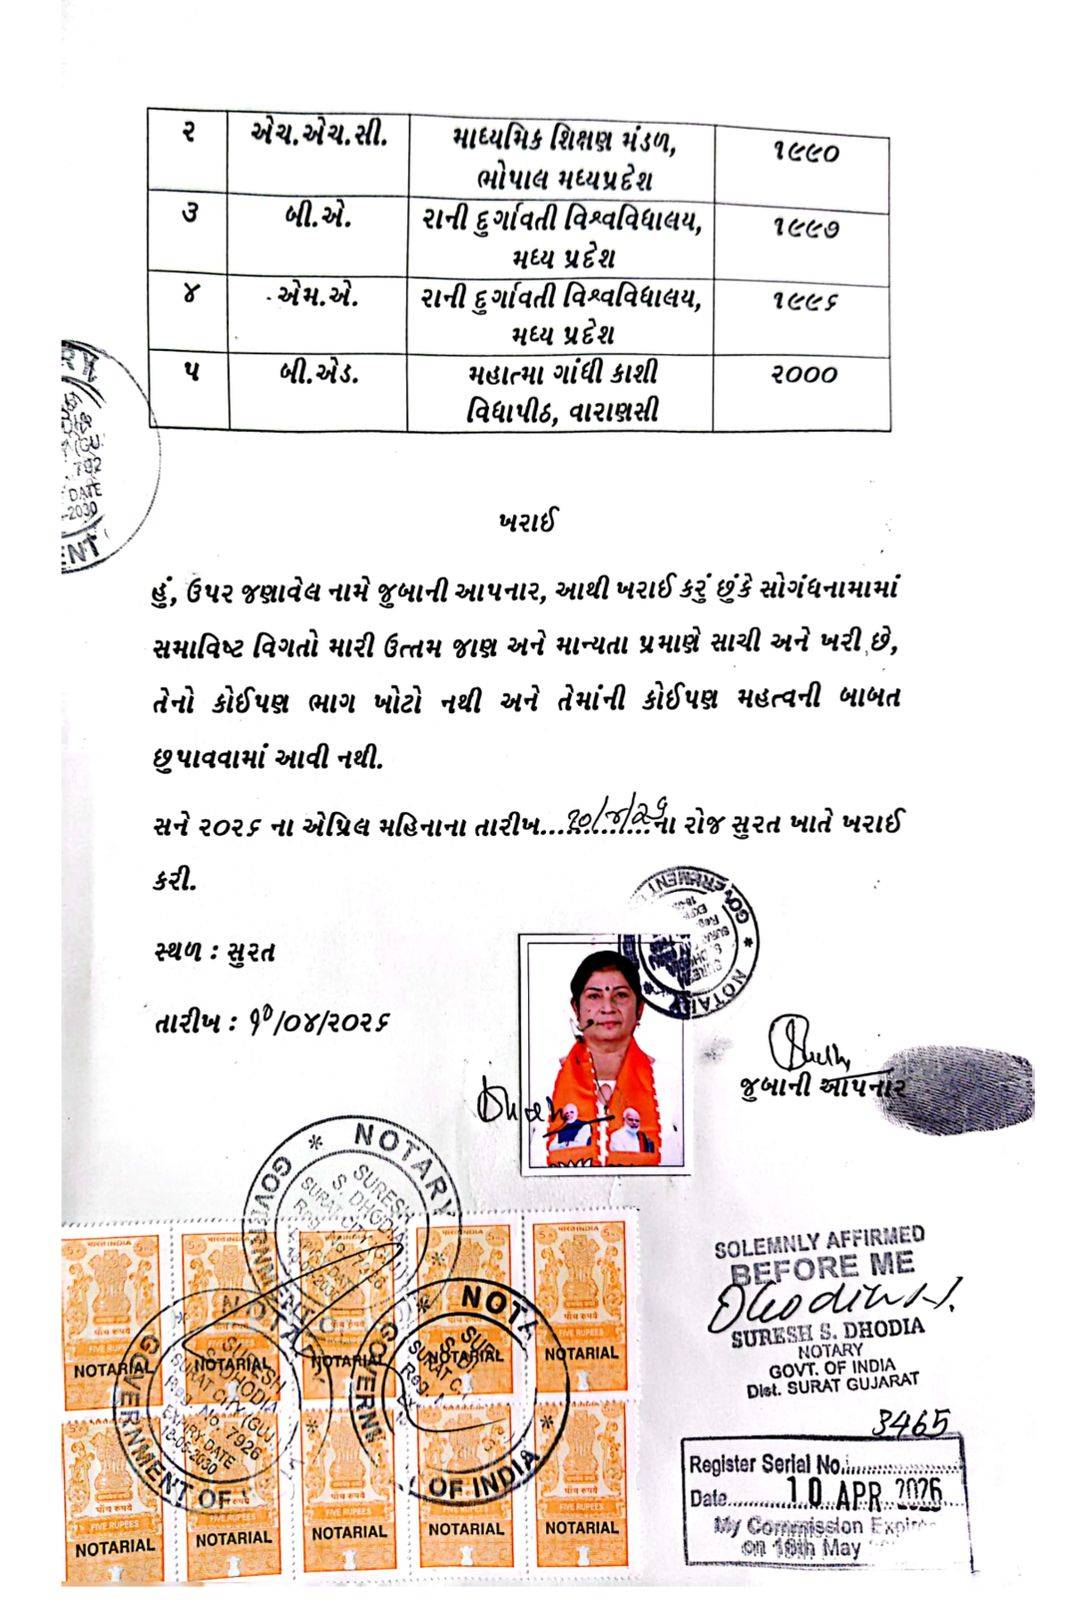 ૨ એચ.એચ.સી. માધ્યમિક શિક્ષણ મંડળ, ૧૯૯૦
ભોપાલ મધ્યપ્રદેશ
૩ બી.એ. રાની દુર્ગાવતી વિશ્વવિધાલય, ૧૯૯૭
મધ્ય પ્રદેશ
૪ એમ.એ. રાની દુર્ગાવતી વિશ્વવિધાલય, ૧૯૯૬
મધ્ય પ્રદેશ
૫ બી.એડ. મહાત્મા ગાંધી કાશી ૨૦૦૦
વિધાપીઠ, વારાણસી
ખરાઈ
હું, ઉપર જણાવેલ નામે જુબાની આપનાર, આથી ખરાઈ કરું છુંકે સોગંધનામામાં
સમાવિષ્ટ વિગતો મારી ઉત્તમ જાણ અને માન્યતા પ્રમાણે સાચી અને ખરી છે,
તેનો કોઈપણ ભાગ ખોટો નથી અને તેમાંની કોઈપણ મહત્વની બાબત
છુપાવવામાં આવી નથી.
સને ૨૦૨૬ ના એપ્રિલ મહિનાના તારીખ ૧૦/૪/૨૬ ના રોજ સુરત ખાતે ખરાઈ
કરી.
સ્થળ : સુરત
તારીખ : ૧૦/૦૪/૨૦૨૬
જુબાની આપનાર
NOTARY
GOVERNMENT
SURESH
S. DHODIA
SURAT CITY (GUJ.)
Reg. No. 7926
EXPIRY DATE
18-05-2030
NOTARY
GOVERNMENT OF INDIA
SURESH
S. DHODIA
SURAT CITY (GUJ.)
Reg. No. 7926
EXPIRY DATE
18-05-2030
भारत INDIA
पाँच रुपये
FIVE RUPEES
NOTARIAL NOTARIAL NOTARIAL NOTARIAL NOTARIAL
पाँच रुपये
FIVE RUPEES
NOTARIAL NOTARIAL NOTARIAL NOTARIAL NOTARIAL
SOLEMNLY AFFIRMED
BEFORE ME
SURESH S. DHODIA
NOTARY
GOVT. OF INDIA
Dist. SURAT GUJARAT
3465
Register Serial No.
Date 10 APR 2026
My Commission Expires
on 18th May